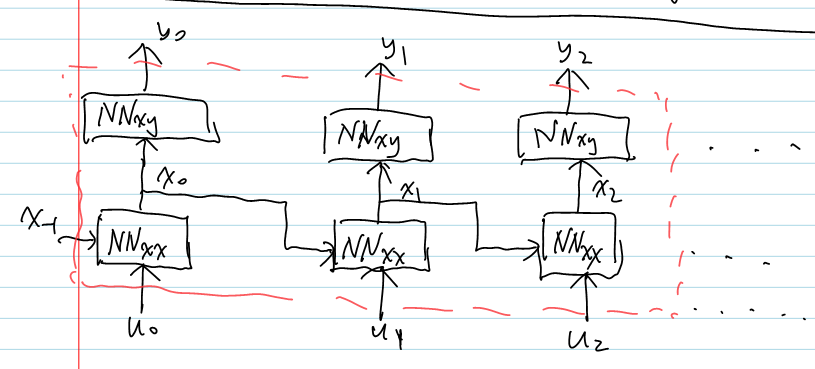 y₀ y₁ y₂
NNxy NNxy NNxy
x₀ x₁ x₂
x₋₁ NNxx NNxx NNxx
u₀ u₁ u₂